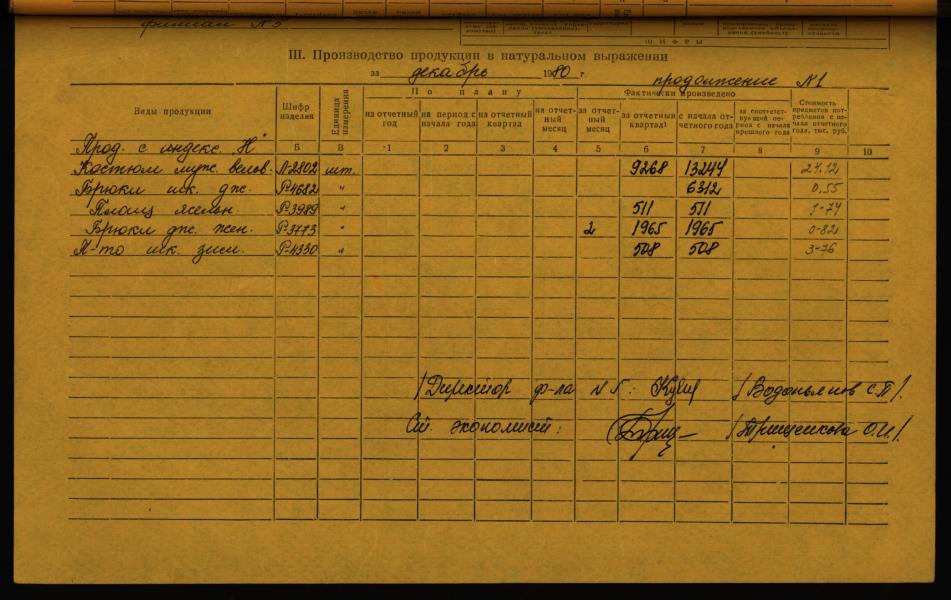 филиал N 5
ШИФРЫ
III. Производство продукции в натуральном выражении
за декабрь 1980 г.
продолжение N1
Виды продукции
Шифр изделия
Единица измерения
По плану
на отчетный год
на период с начала года
на отчетный квартал
на отчетный месяц
Фактически произведено
за отчетный месяц
за отчетный квартал
с начала отчетного года
за соответствующий период с начала прошлого года
Стоимость предметов потребления с начала отчетного года, тыс. руб.
Прод. с индекс. "Н" Б В 1 2 3 4 5 6 7 8 9 10
Костюм муж. N-2802 шт. 9268 13244 24.12
Брюки шк. дж. Р-4682 " 6312 0.55
Плащ Р-3989 " 511 511
Брюки дж. жен. Р-3773 " 2 1965 1965 0-82
П-то шк. зим. Р-4330 " 508 508 3-76
/Директор ф-ла N 5: /Водопьянов С.П/.
Ст. экономист: О.И./.